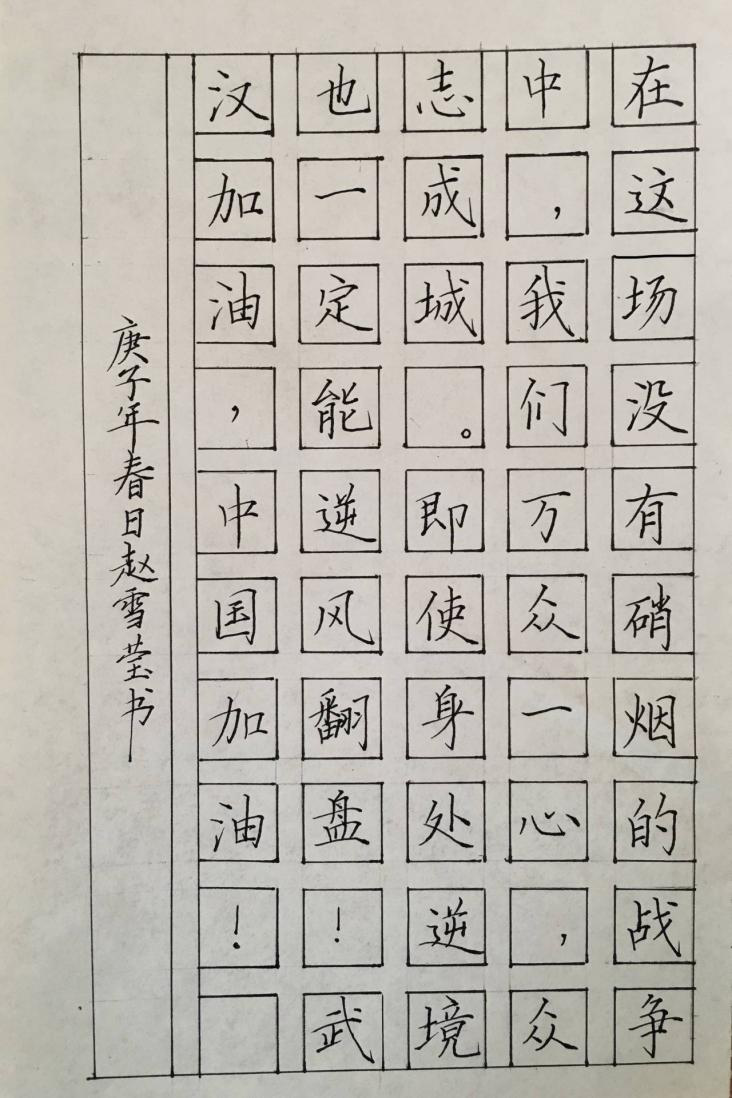 在这场没有硝烟的战争
中，我们万众一心，众
志成城。即使身处逆境
也一定能逆风翻盘！武
汉加油，中国加油！
庚子年春日赵雪莹书